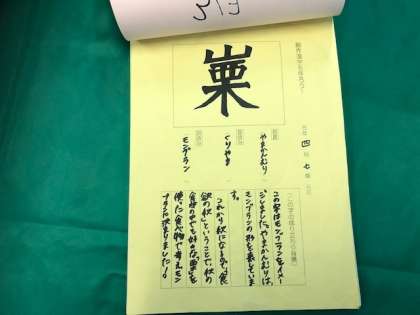 創作漢字を作ろう!
四 七
部首
やまかんむり
くりやま
モンブラン
この字はモンブランをイメー
ジしました。やまかんむりは、
モンブランの形を表していま
す。
これから秋になるので、「食
欲の秋」ということで、秋の
食材の中でも好きな「栗」を
使った食べ物で考えモン
ブランに決まりました!